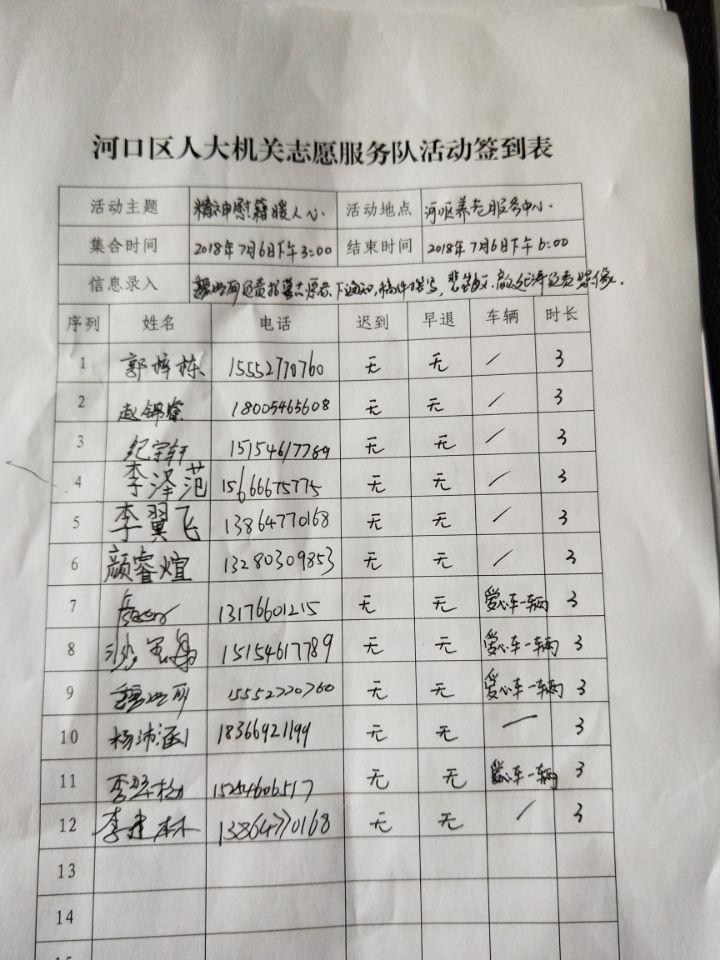 河口区人大机关志愿服务队活动签到表
活动主题 精神慰藉暖人心 活动地点 河口养老服务中心
集合时间 2018年7月6日下午3:00 结束时间 2018年7月6日下午6:00
信息录入
序列 姓名 电话 迟到 早退 车辆 时长
1 郭梓栋 15552770760 无 无 / 3
2 赵锦睿 18005465608 无 无 / 3
3 纪宇轩 15154617789 无 无 / 3
4 李泽范 15666675775 无 无 / 3
5 李翼飞 13864770168 无 无 / 3
6 颜睿煊 13280309853 无 无 / 3
7 13176601215 无 无 爱心车一辆 3
8 15154617789 无 无 爱心车一辆 3
9 15552770760 无 无 爱心车一辆 3
10 杨沛涵 18366921199 无 无 / 3
11 15254606517 无 无 爱心车一辆 3
12 李建林 13864770168 无 无 / 3
13
14